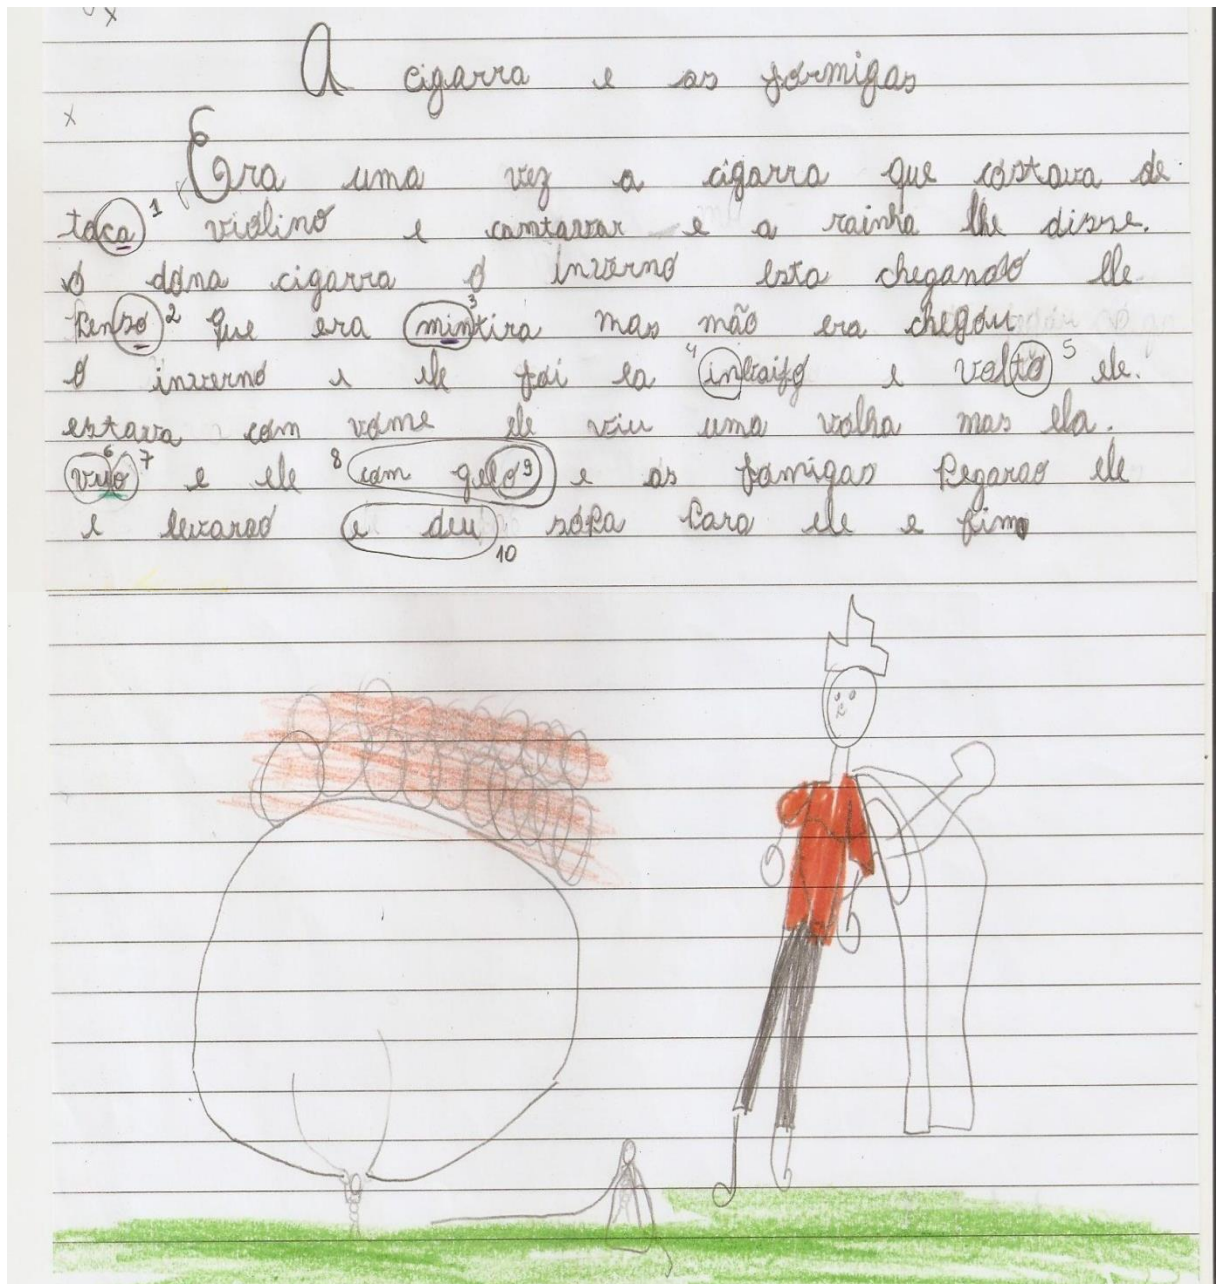 A cigarra e as formigas
Era uma vez a cigarra que costava de
toca 1 violino e cantavar e a rainha lhe disse.
o dona cigarra o inverno esta chegando ele
penso 2 que era mintira 3 mas mão era chegou
o inverno e ele foi ea 4 intraifo e volto 5 ele.
estava com vome ele viu uma volha mas ela.
vuo 6 7 e ele 8 com gelo 9 e as famigas pegarao ele
e levarao e deu 10 sopa para ele e fim